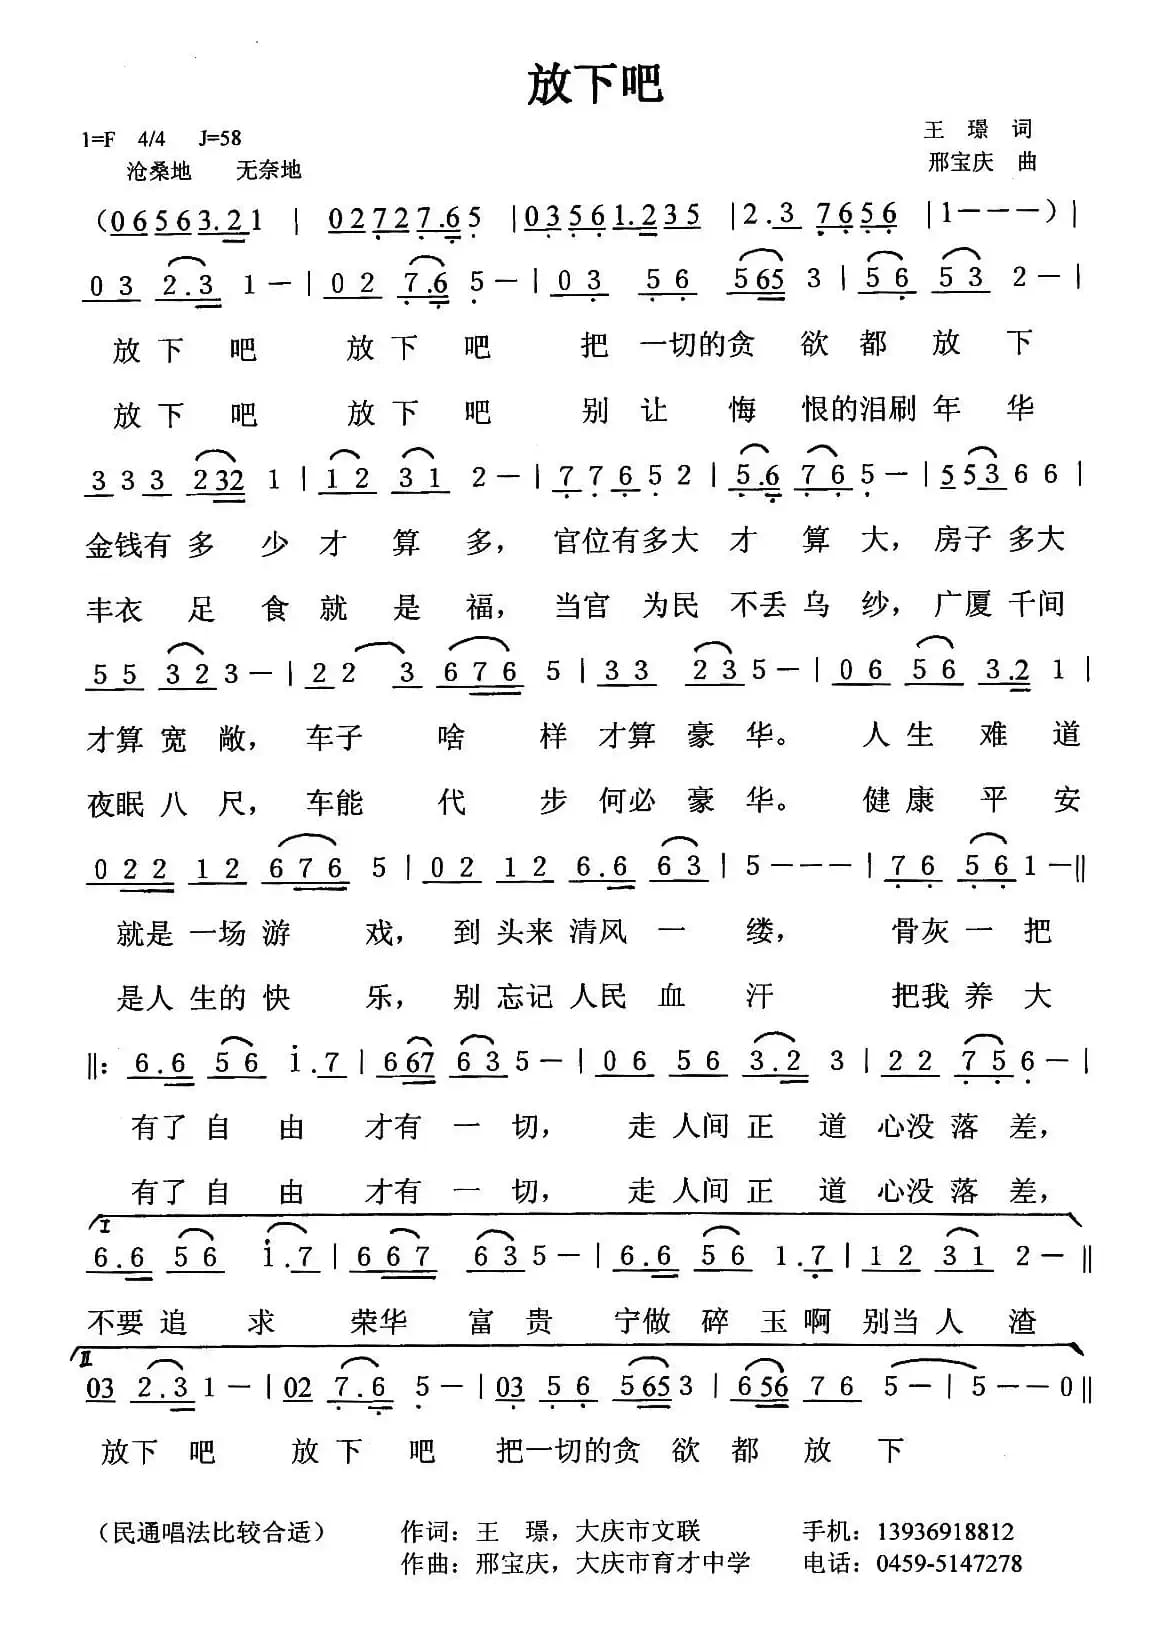 放下吧
1=F 4/4 J=58
王 璟 词
沧桑地 无奈地
邢宝庆 曲
（0 6 5 6 3. 2 1 | 0 2 7 2 7 . 6 5 | 0 3 5 6 1. 2 3 5 | 2 . 3 7 6 5 6 | 1 — — — ）|
0 3 2 . 3 1 — | 0 2 7 . 6 5 — | 0 3 5 6 5 6 5 3 | 5 6 5 3 2 — |
放 下 吧 放 下 吧 把 一切的贪 欲 都 放 下
放 下 吧 放 下 吧 别 让 悔 恨的泪刷 年 华
3 3 3 2 3 2 1 | 1 2 3 1 2 — | 7 7 6 5 2 | 5 . 6 7 6 5 — | 5 5 3 6 6 |
金钱有 多 少 才 算 多， 官位有多大 才 算 大， 房子 多大
丰衣 足 食 就 是 福， 当官 为民 不丢 乌 纱， 广厦 千间
5 5 3 2 3 — | 2 2 3 6 7 6 5 | 3 3 2 3 5 — | 0 6 5 6 3 . 2 1 |
才算 宽 敞， 车子 啥 样 才算 豪 华。 人 生 难 道
夜眠 八 尺， 车能 代 步 何必 豪 华。 健 康 平 安
0 2 2 1 2 6 7 6 5 | 0 2 1 2 6 . 6 6 3 | 5 — — — | 7 6 5 6 1 — ‖
就是 一场 游 戏， 到 头来 清风 一 缕， 骨灰 一 把
是人 生的 快 乐， 别 忘记 人民 血 汗 把我 养 大
‖: 6 . 6 5 6 i . 7 | 6 6 7 6 3 5 — | 0 6 5 6 3 . 2 3 | 2 2 7 5 6 — |
有了 自 由 才有 一 切， 走 人间 正 道 心没 落 差，
有了 自 由 才有 一 切， 走 人间 正 道 心没 落 差，
I
6 . 6 5 6 i . 7 | 6 6 7 6 3 5 — | 6 . 6 5 6 1 . 7 | 1 2 3 1 2 — ‖
不要 追 求 荣华 富 贵 宁做 碎 玉 啊 别当 人 渣
II
0 3 2 . 3 1 — | 0 2 7 . 6 5 — | 0 3 5 6 5 6 5 3 | 6 5 6 7 6 5 — | 5 — — 0 ‖
放下 吧 放 下 吧 把一切的贪 欲 都 放 下
（民通唱法比较合适） 作词：王 璟，大庆市文联 手机：13936918812
作曲：邢宝庆，大庆市育才中学 电话：0459-5147278